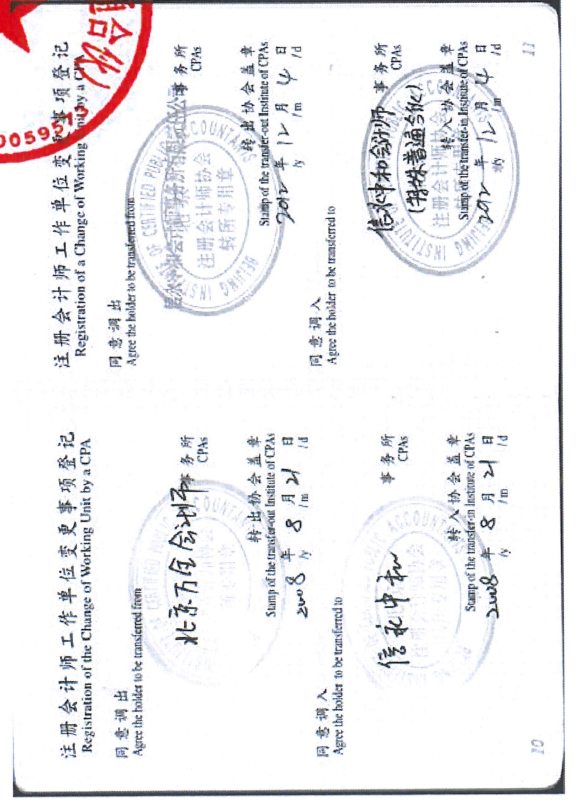 注册会计师工作单位变更事项登记
Registration of the Change of Working Unit by a CPA
同意调出
Agree the holder to be transferred from
北京万全会计师 事务所
CPAs
转出协会盖章
Stamp of the transfer-out Institute of CPAs
2008 年 8 月 21 日
/y /m /d
同意调入
Agree the holder to be transferred to
信永中和 事务所
CPAs
转入协会盖章
Stamp of the transfer-in Institute of CPAs
2008 年 8 月 21 日
/y /m /d
10
注册会计师工作单位变更事项登记
Registration of a Change of Working Unit by a CPA
同意调出
Agree the holder to be transferred from
事务所
CPAs
BEIJING INSTITUTE OF CERTIFIED PUBLIC ACCOUNTANTS
注册会计师协会
转所专用章
转出协会盖章
Stamp of the transfer-out Institute of CPAs
2012 年 12 月 4 日
/y /m /d
同意调入
Agree the holder to be transferred to
信永中和会计师 事务所
(特殊普通合伙) CPAs
转入协会盖章
Stamp of the transfer-in Institute of CPAs
2012 年 12 月 4 日
/y /m /d
11